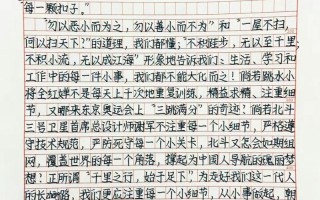 每一颗扣子。”
“勿以恶小而为之，勿以善小而不为”和“一屋不扫，
何以扫天下？”的道理，我们都懂；“不积跬步，无以至千里；
不积小流，无以成江海”形象地告诉我们：生活、学习和
工作中的每一件小事，我们都不能大而化之！倘若跳水小
将全红婵不是每天上千次地重复训练，精益求精、注重细
节，又哪来东京奥运会上“三跳满分”的奇迹？倘若北斗
三号卫星首席总设计师谢军不注重每一个小细节，严格遵
守技术规范，严防死守每一个小关卡，北斗又怎会如期组
网，覆盖世界的每一个角落，撑起为中国人导航的瑰丽梦
想？正所谓“千里之行，始于足下”。为我们这一代人
的长
路，我们更应注重每一个小细节，从小事做起，朝